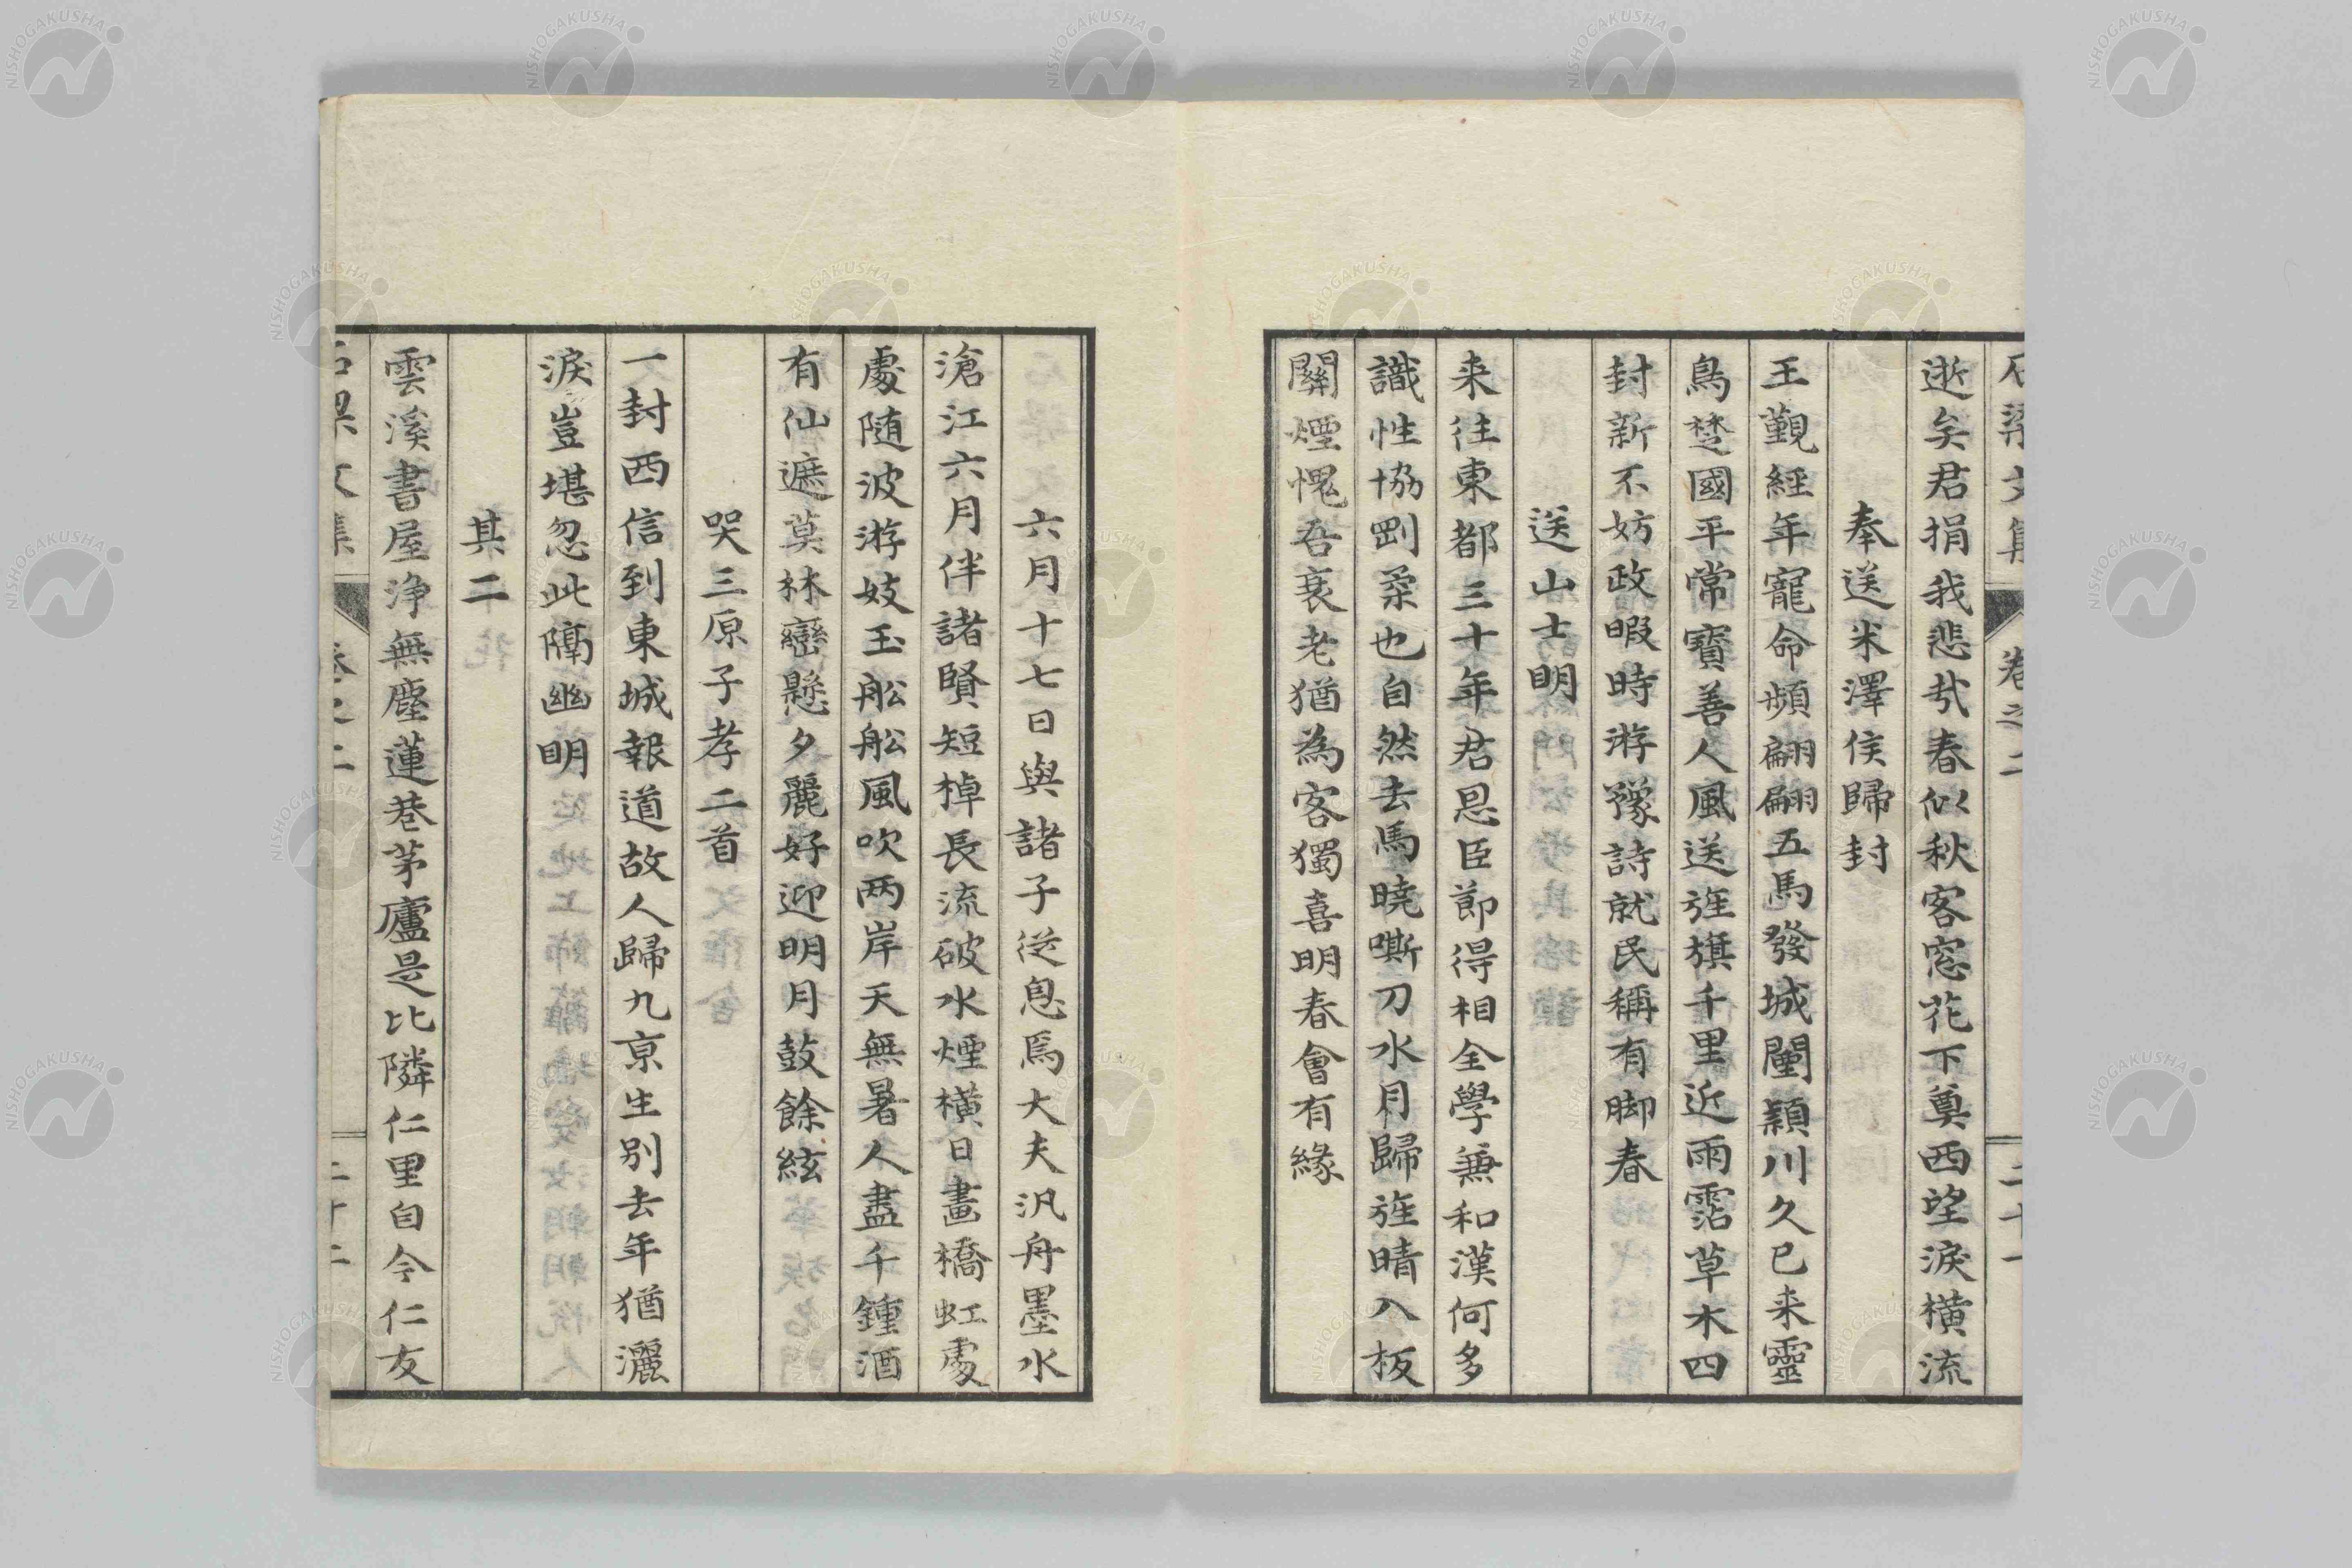 石梁文集 卷之二 二十一
逝矣君捐我悲哉春似秋客窓花下奠西望淚橫流
奉送米澤侯歸封
王覲經年寵命頻翩翩五馬發城闉穎川久已来靈
鳥楚國平常寶善人風送旌旗千里近雨霑草木四
封新不妨政暇時游豫詩就民稱有脚春
送山士明
来往東都三十年君恩臣節得相全學兼和漢何多
識性協剛柔也自然去馬曉嘶刀水月歸旌晴入板
關煙愧吾衰老猶為客獨喜明春會有緣
六月十七日與諸子從息焉大夫汎舟墨水
滄江六月伴諸賢短棹長流破水煙橫日畫橋虹處
處随波游妓玉舩舩風吹两岸天無暑人盡千鍾酒
有仙遮莫林巒懸夕麗好迎明月鼓餘絃
哭三原子孝二首
一封西信到東城報道故人歸九京生別去年猶灑
淚豈堪忽此隔幽明
其二
雲溪書屋浄無塵蓮巷茅廬是比隣仁里自今仁友
石梁文集 卷之二 二十二
NISHOGAKUSHA